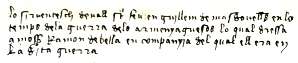 lo sirventesch devall scrit feu en guillem de masdovelles en lo
temps dela guerra dels armenyaguesos lo qual dressa
a mossen Ramon de bella en companyia del qual ell era en
la dita guerra